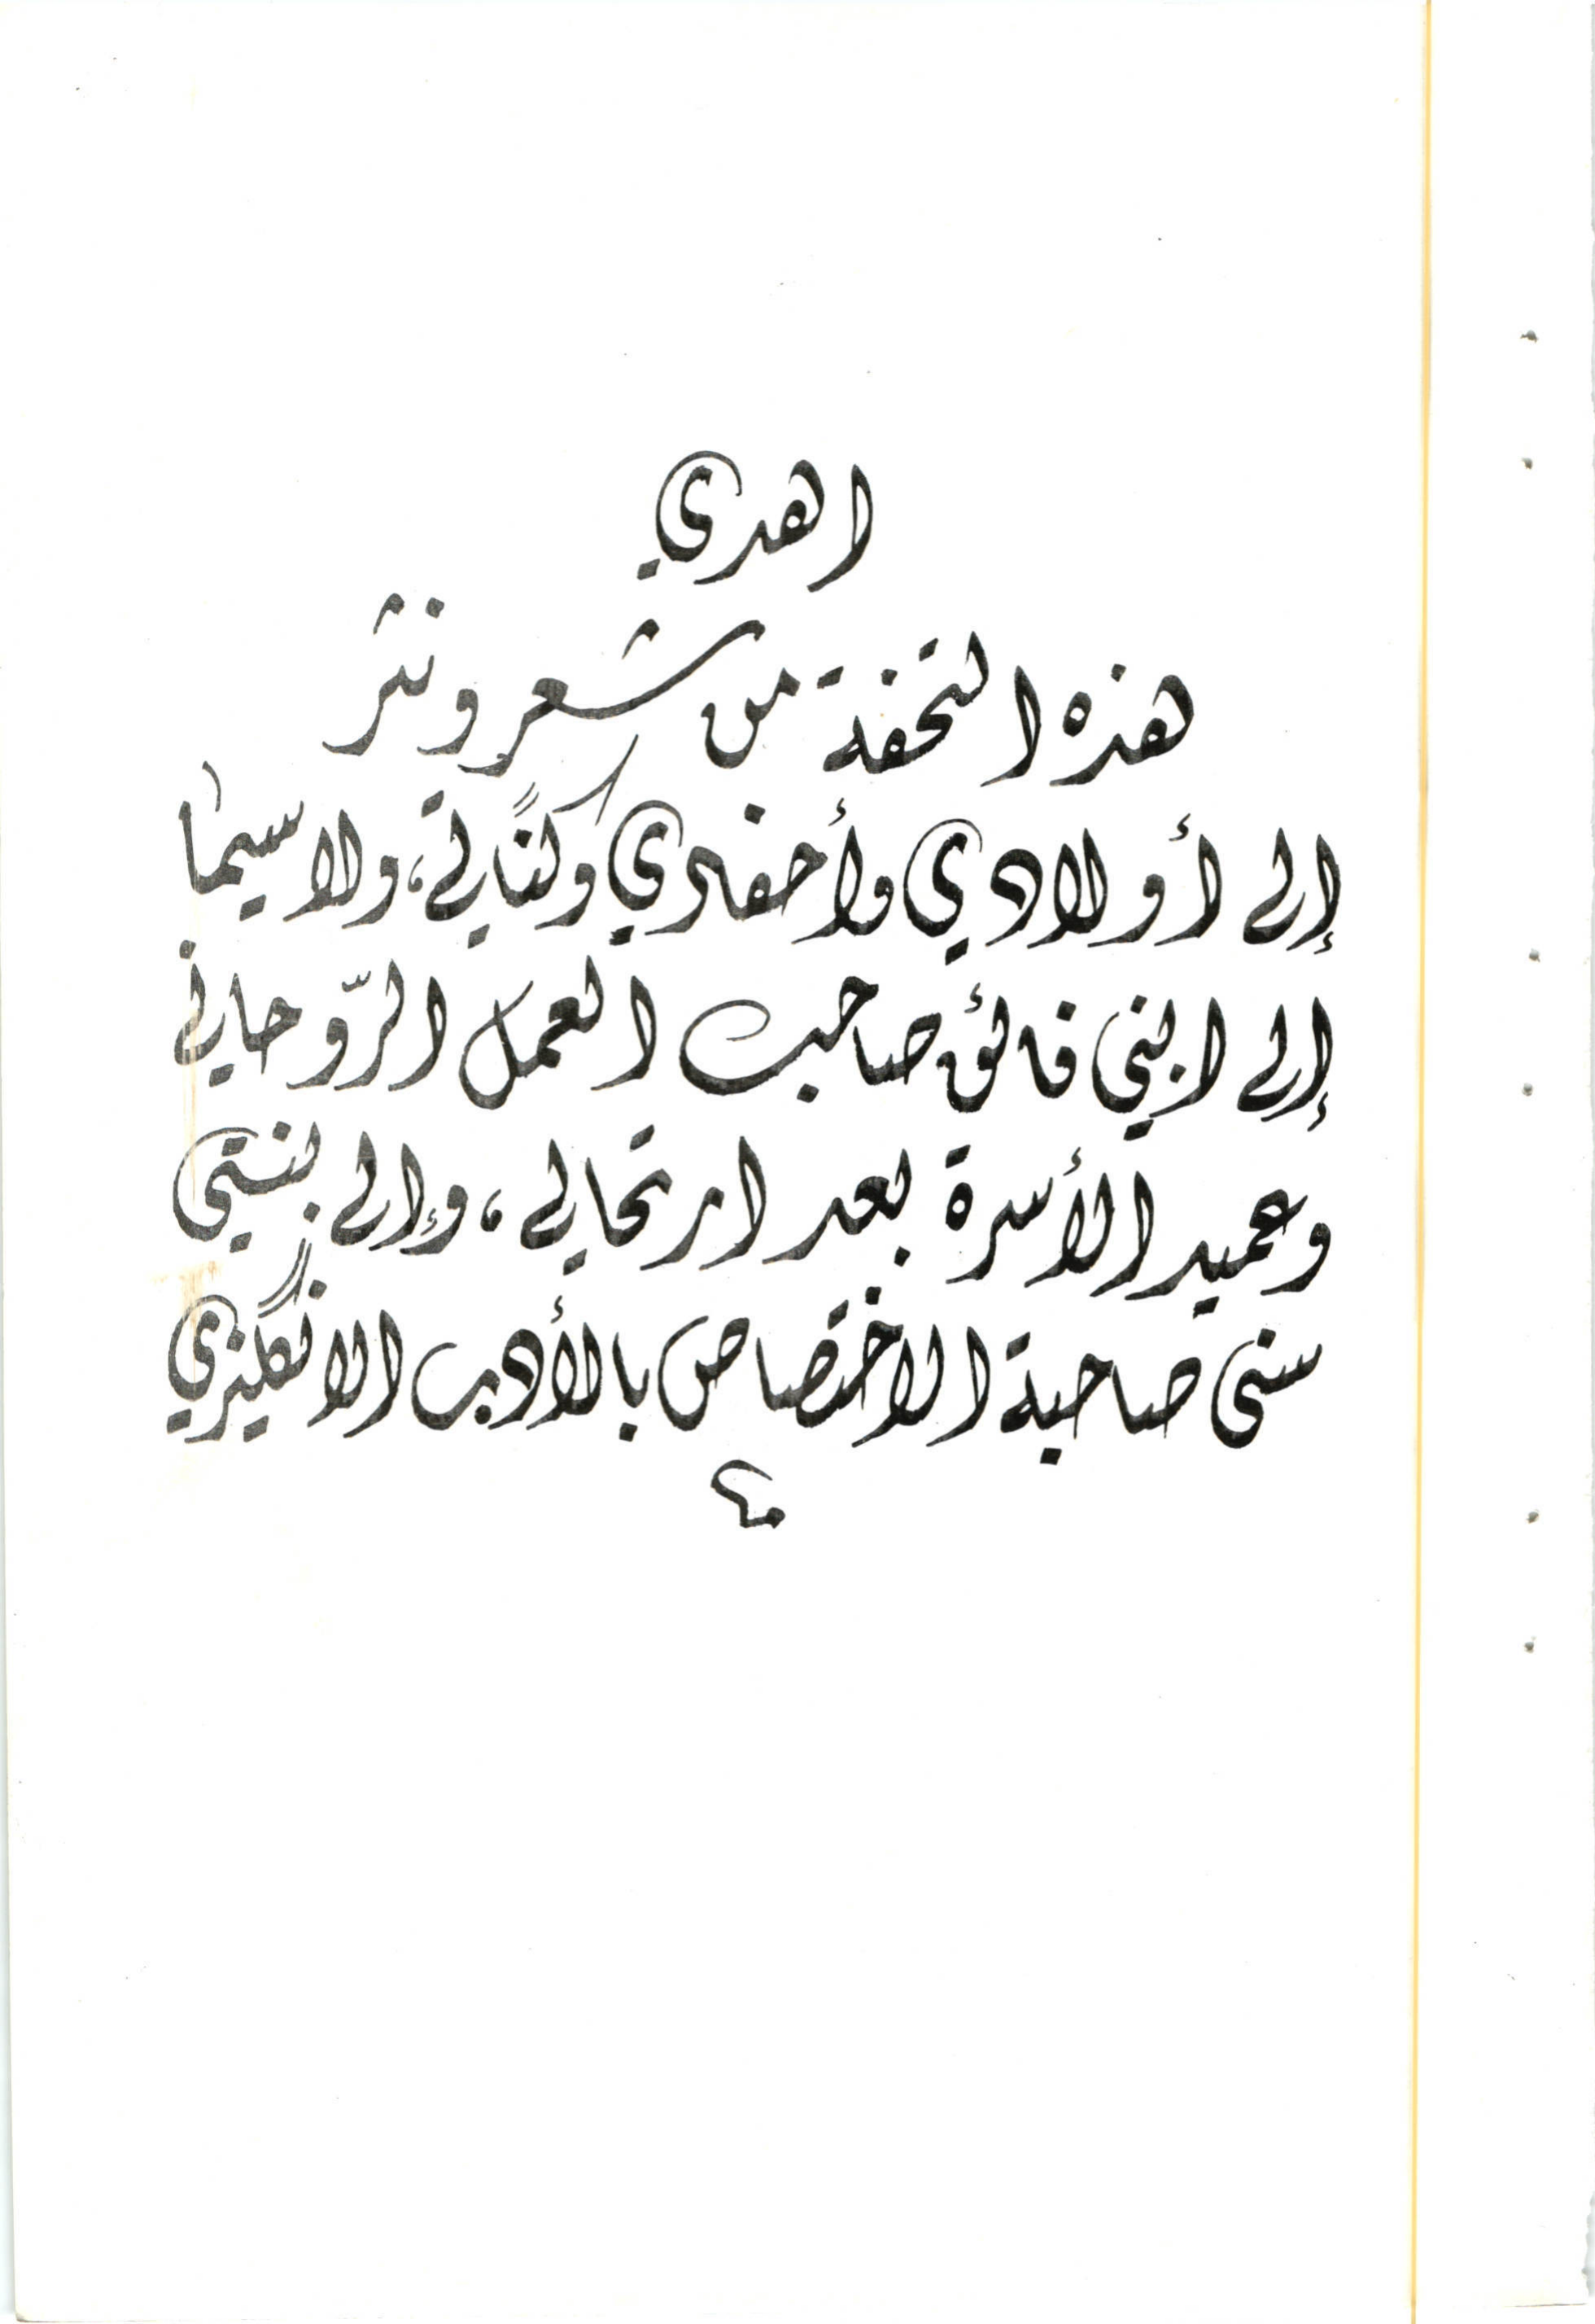 اهدي
هذه التحفة من شعر ونثر
إلى أولادي وأحفادي وكنّاتي، ولا سيما
إلى ابني فائق صاحب العمل الرّوحاني
وعميد الأسرة بعد ارتحالي، وإلى بنتي
سنى صاحبة الاختصاص بالأدب الانگليزي